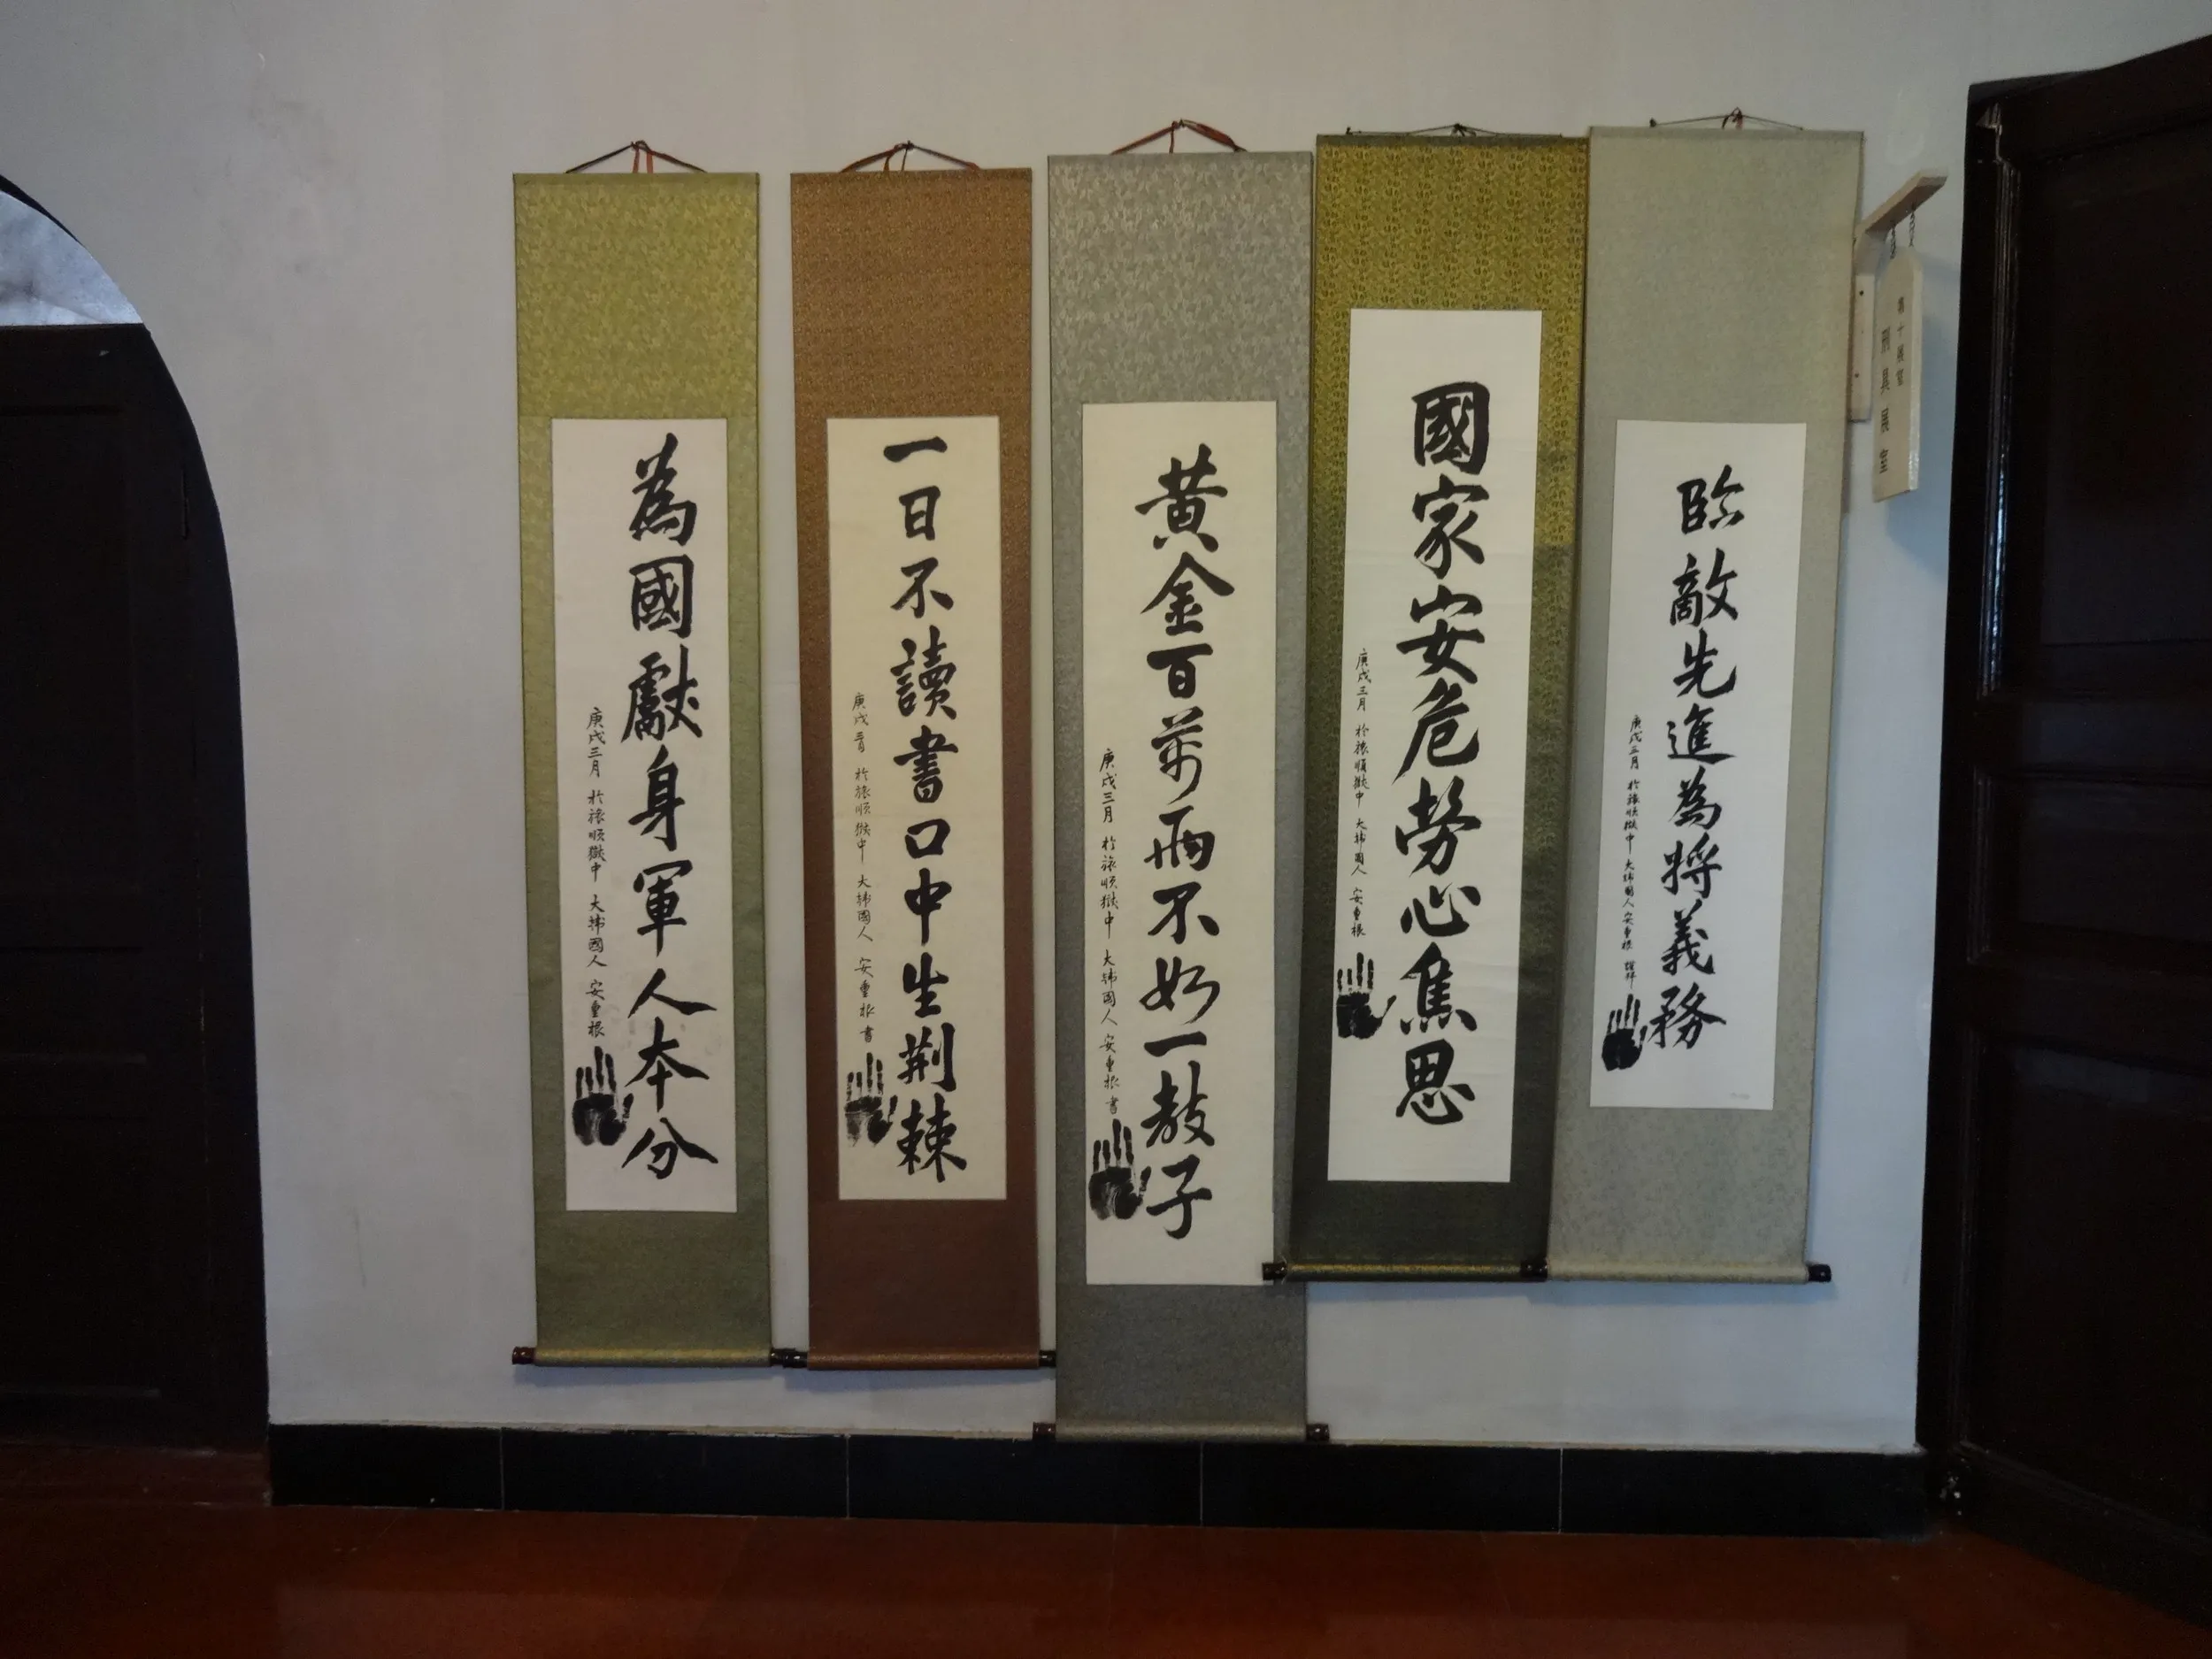 為國獻身軍人本分
庚戌三月 於旅順獄中 大韓國人 安重根
一日不讀書口中生荊棘
庚戌三月 於旅順獄中 大韓國人 安重根 書
黃金百萬兩不如一敎子
庚戌三月 於旅順獄中 大韓國人 安重根 書
國家安危勞心焦思
庚戌三月 於旅順獄中 大韓國人 安重根
臨敵先進為將義務
庚戌三月 於旅順獄中 大韓國人 安重根 謹拜
刑具展室